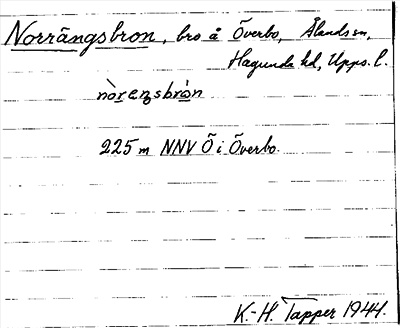 Norrängsbron, bro å Överbo, Ålands sn,
Hagunda hd, Upps. l.
nòrenzsbròn
225 m NNV Ö i Överbo.
K.-H. Tapper 1944.